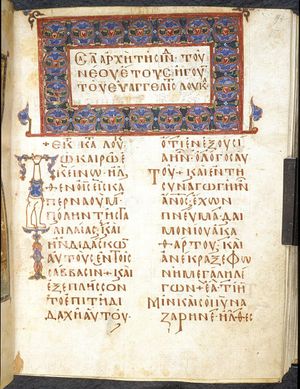 ΣΑ Α ΑΡΧΗ ΤΗΣ ΙΝ ΤΟΥ
ΝΕΟΥ ΕΤΟΥΣ ΗΓΟΥ
ΤΟΥ ΕΥΑΓΓΕΛΙΣ ΛΟΥΚ
+ ΕΚ Κ ΛΟΥ
ΤΩ ΚΑΙΡΩ Ε
ΚΕΙΝΩ ΗΛ
ΘΕΝ Ο ΙΣ ΕΙΣ ΚΑ
ΠΕΡΝΑΟΥΜ
ΠΟΛΙΝ ΤΗΣ ΓΑ
ΛΙΛΑΙΑΣ ΚΑΙ
ΗΝ ΔΙΔΑΣΚΩ
ΑΥΤΟΥΣ ΕΝ ΤΟΙΣ
ΣΑΒΒΑΣΙΝ + ΚΑΙ
ΕΞΕΠΛΗΣΣΟΝ
ΤΟ ΕΠΙ ΤΗ ΔΙ
ΔΑΧΗ ΑΥΤΟΥ
ΟΤΙ ΕΝ ΕΞΟΥΣΙ
Α ΗΝ Ο ΛΟΓΟΣ ΑΥ
ΤΟΥ + ΚΑΙ ΕΝ ΤΗ
ΣΥΝΑΓΩΓΗ ΗΝ
ΑΝΟΣ ΕΧΩΝ
ΠΝΕΥΜΑ ΔΑΙ
ΜΟΝΙΟΥ ΑΚΑ
ΘΑΡΤΟΥ ΚΑΙ
ΑΝΕΚΡΑΞΕ ΦΩ
ΝΗ ΜΕΓΑΛΗ ΛΕ
ΓΩΝ + ΕΑ ΤΙ Η
ΜΙΝ ΚΑΙ ΣΟΙ ΙΥ ΝΑ
ΖΑΡΗΝΕ ΗΛΘΕΣ